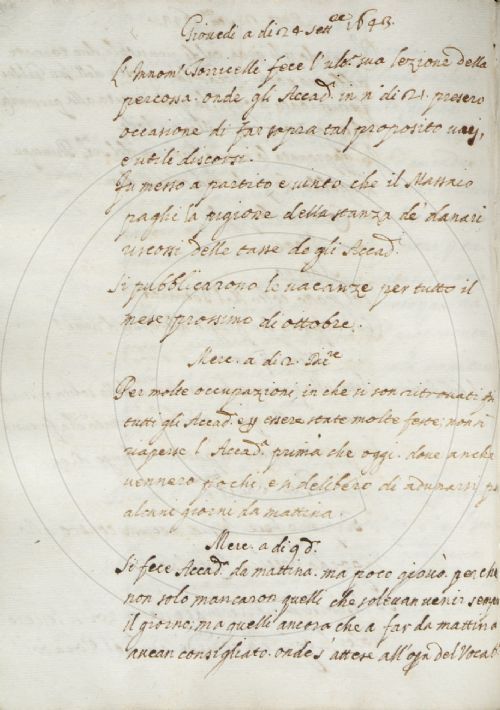 Giovedì a dì 24 Sett.re 1643.
L'Innom.o Torricelli fece l'ul.a sua lezione della
percossa. onde gli Accad.i in n.o di 21. presero
occasione di far sopra tal proposito varj,
e utili discorsi.
Fu messo a partito e vinto che il Massaio
paghi la pigione della stanza de' danari
riscossi delle tasse degli Accad.i
Si pubblicarono le vacanze per tutto il
mese prossimo di ottobre.
Merc. a dì 2. Dic.re
Per molte occupazioni in che si son ritrovati
tutti gli Accad.i e essere state molte feste; non si
riaperse l'Accad.a prima che oggi. dove anche
vennero pochi, e si deliberò di adunarsi p
alcuni giorni da mattina.
Merc. a dì 9 d.o
Si fece Accad.a da mattina. ma poco giovò. per che
non solo mancaron quelli che solevan venir sempre
il giorno; ma quelli ancora che a far da mattina
avean consigliato. onde s'attese all'opra del Vocab